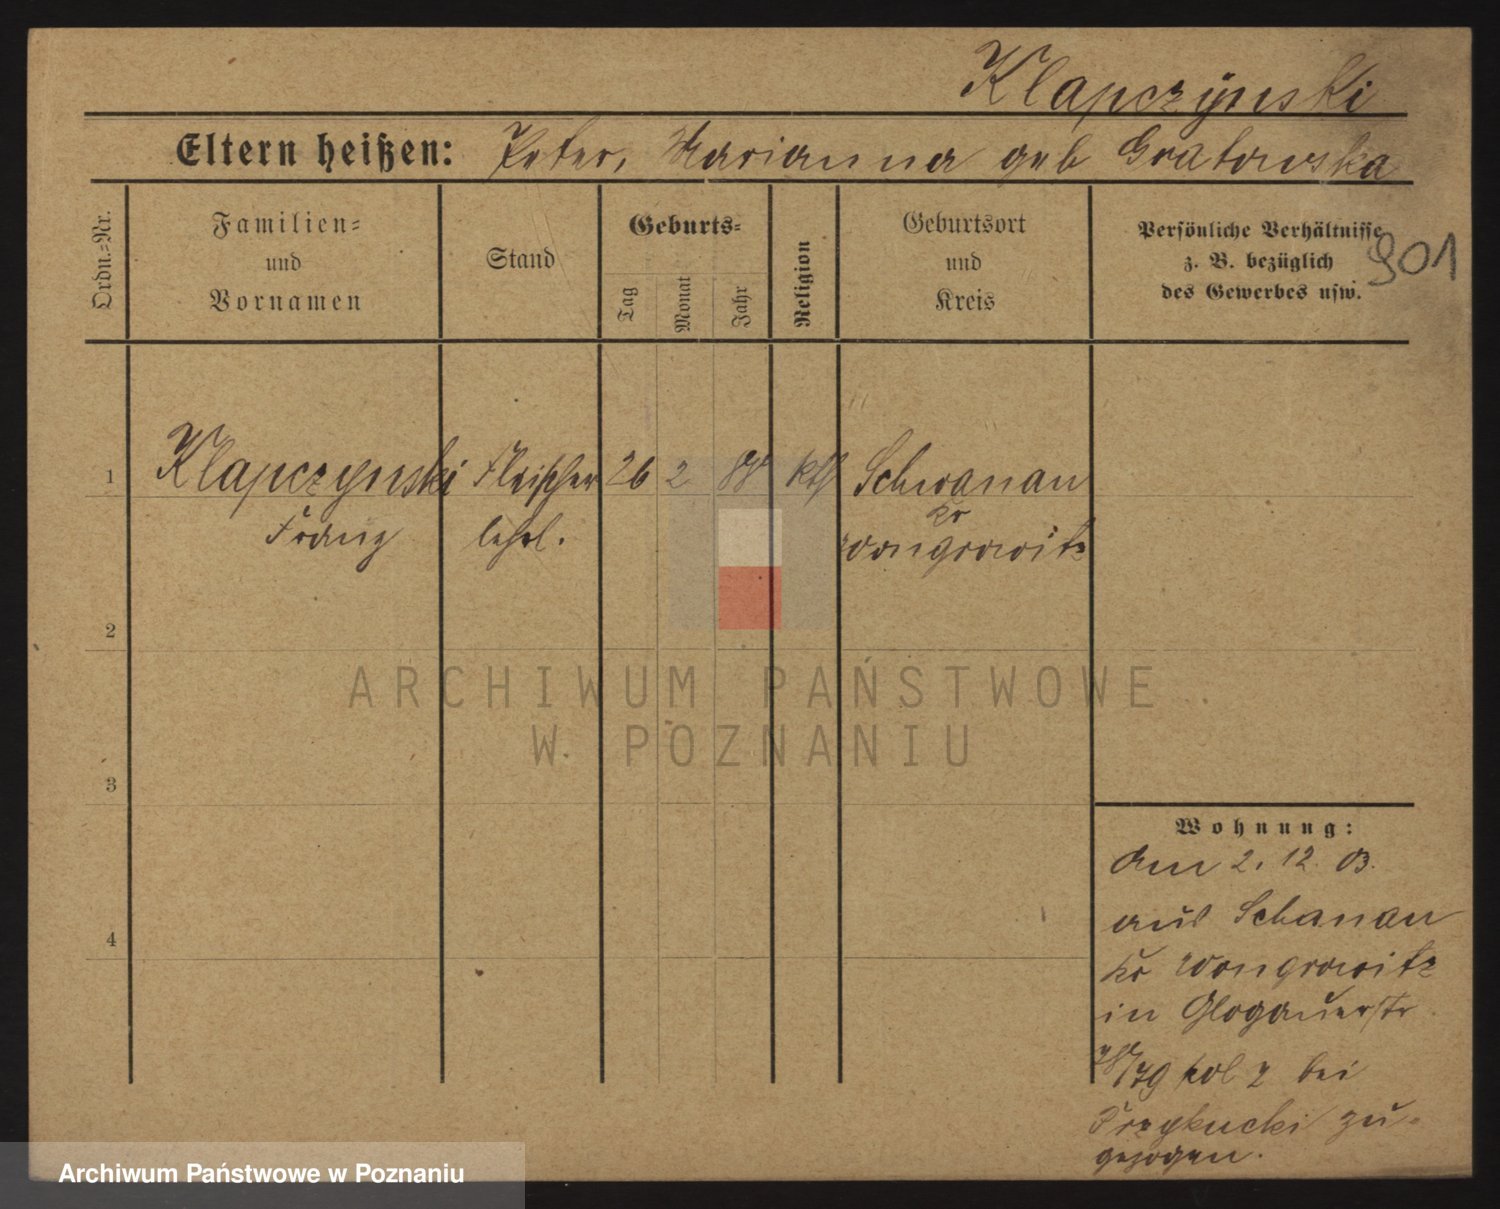 Klapczynski
Eltern heißen: Peter, Marianna geb Gratowska
Ordn.=Nr.
Familien=
und
Vornamen
Stand
Geburts=
Tag
Monat
Jahr
Religion
Geburtsort
und
Kreis
Persönliche Verhältnisse
z. B. bezüglich
des Gewerbes usw.
901
1 Klapczynski Fleischer 26 2 88 kth Schwanau
Franz lehrl. Kr
Wongrowitz
2
3
4
Wohnung:
Am 2. 12. 03.
aus Schanau
Kr Wongrowitz
in Glogauerstr
78/79 bei
zu=
gezogen.
ARCHIWUM PAŃSTWOWE
W POZNANIU
Archiwum Państwowe w Poznaniu